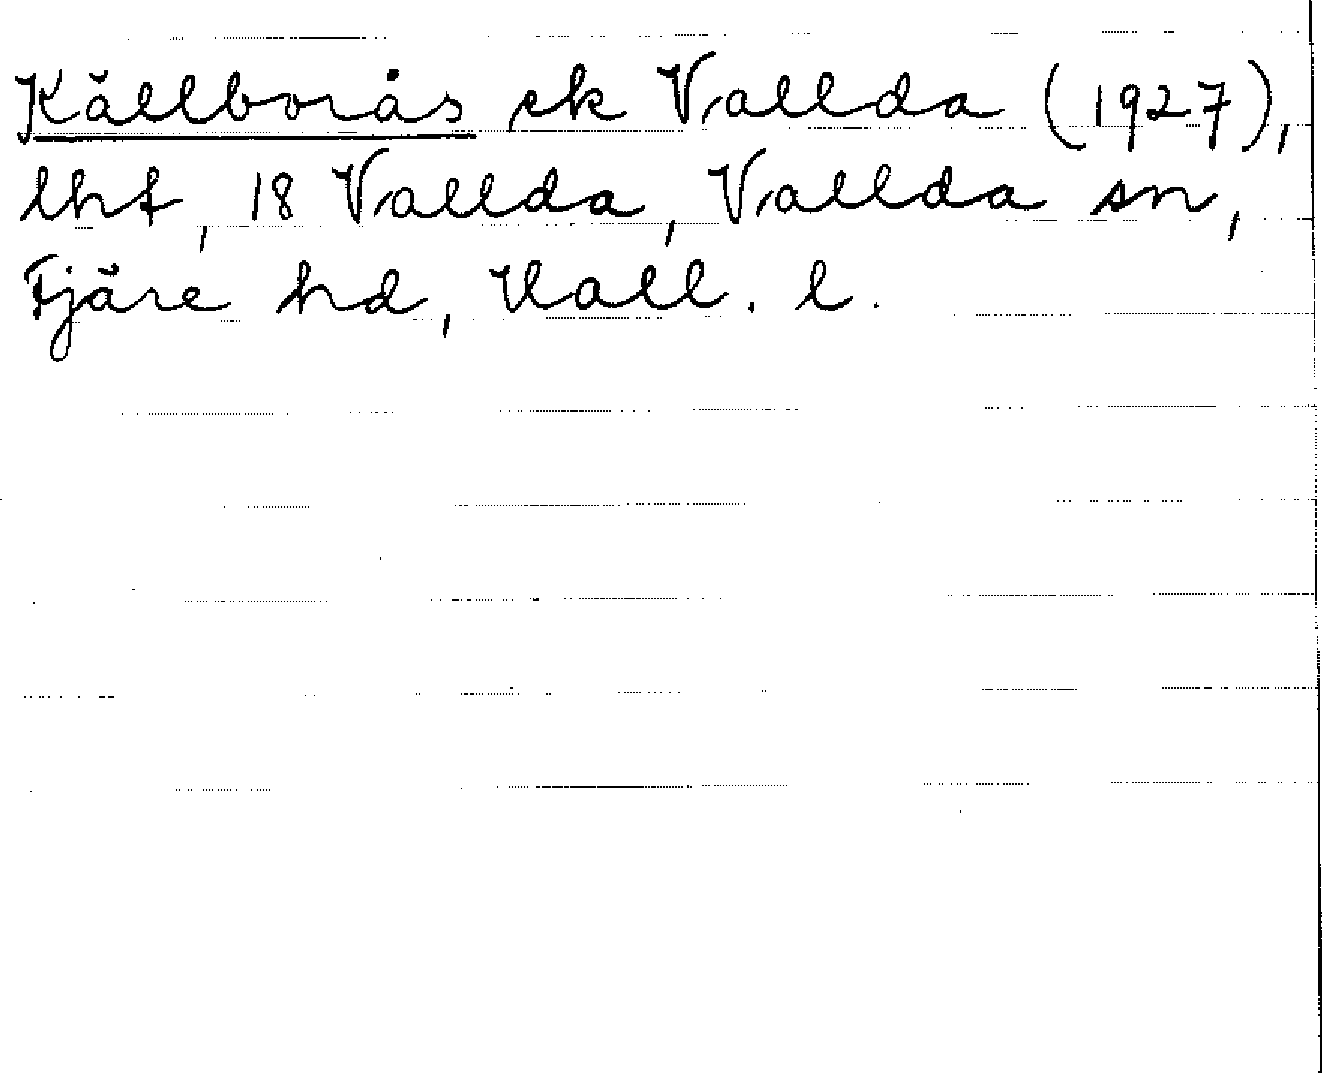 Källborås ek Vallda (1927),
lht, 18 Vallda, Vallda sn,
Fjäre hd, Hall. l.